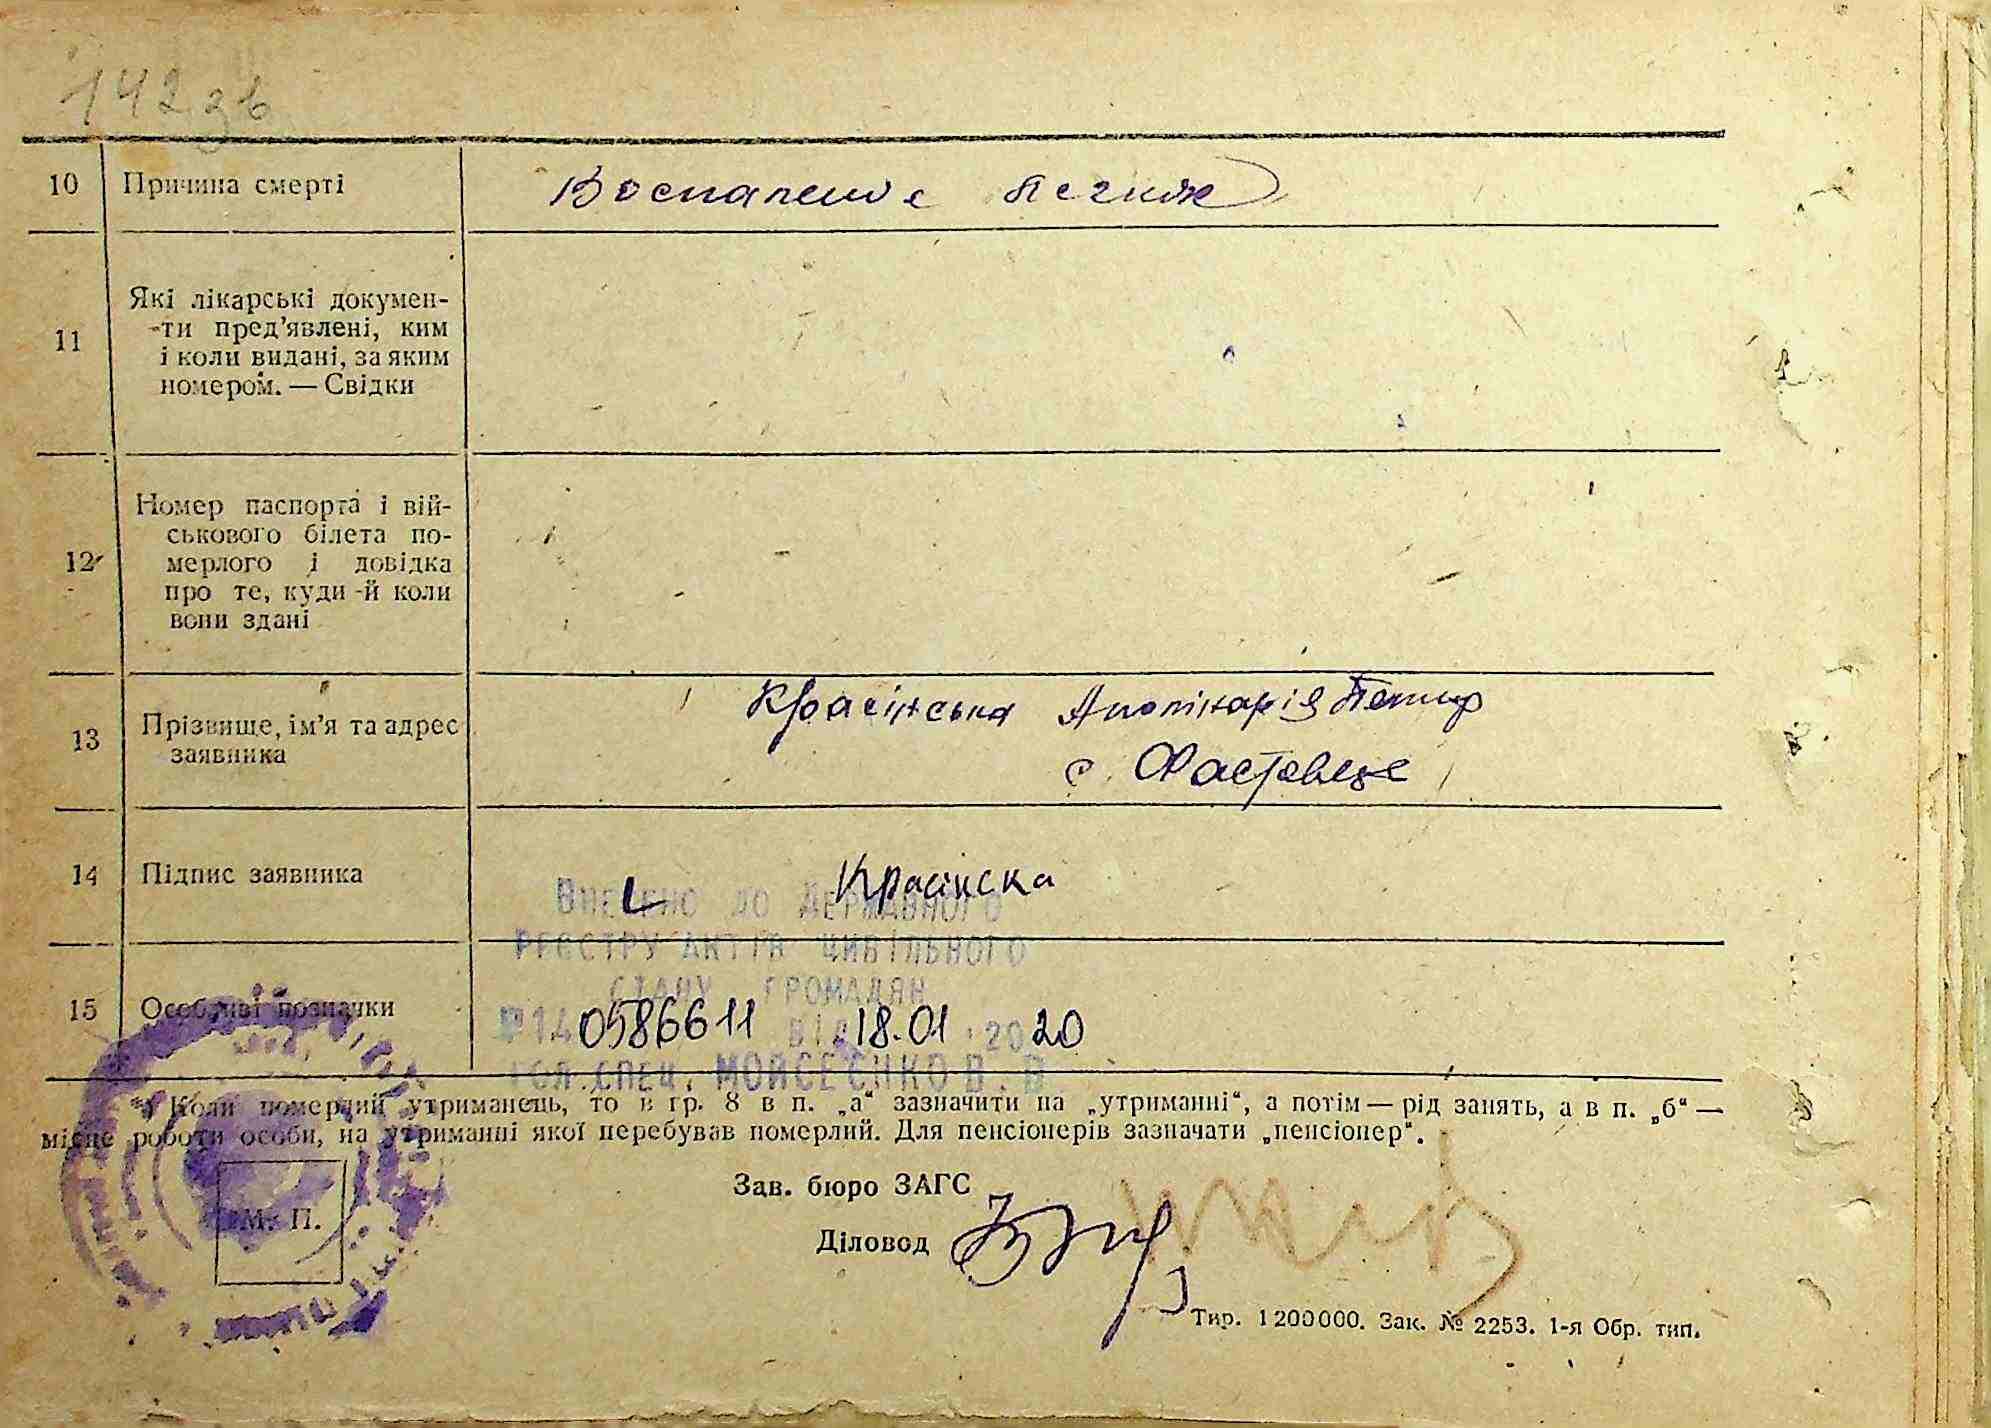 142 зв
10 Причина смерті Воспаление легких
11 Які лікарські докумен-
ти пред'явлені, ким
і коли видані, за яким
номером. — Свідки
12 Номер паспорта і вій-
ськового білета по-
мерлого і довідка
про те, куди й коли
вони здані
13 Прізвище, ім'я та адрес
заявника
Красінська Аполінарія Петир
с. Фастовеце
14 Підпис заявника Красінска
Внесено до Державного
реєстру актів цивільного
стану громадян
15 Особливі позначки
№14 0586611 від 18.01.2020
гол.спец. Мойсеєнко В.В
*) Коли померлий утриманець, то в гр. 8 в п. „а“ зазначити на „утриманні“, а потім — рід занять, а в п. „б“ —
місце роботи особи, на утриманні якої перебував померлий. Для пенсіонерів зазначати „пенсіонер“.
Зав. бюро ЗАГС
М. П.
Діловод
Тир. 1200000. Зак. № 2253. 1-я Обр. тип.